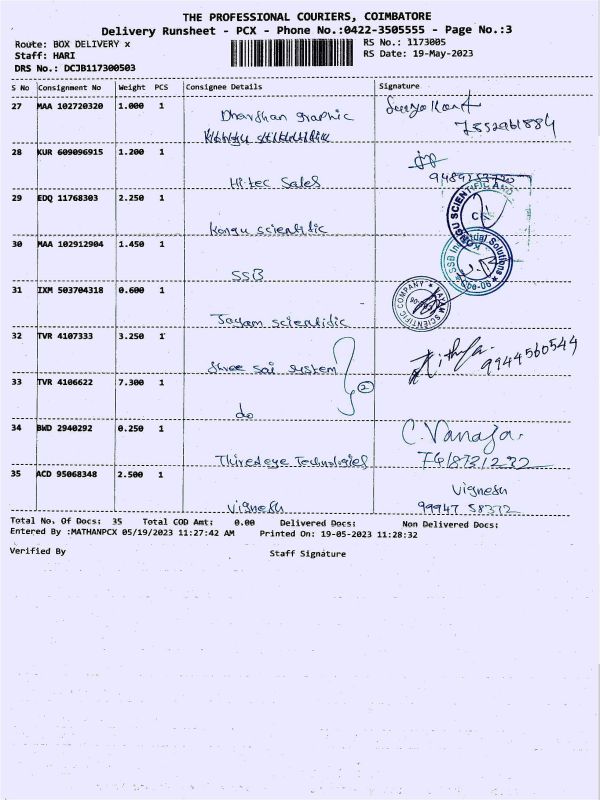 THE PROFESSIONAL COURIERS, COIMBATORE
Delivery Runsheet - PCX - Phone No.:0422-3505555 - Page No.:3
Route: BOX DELIVERY x RS No.: 1173005
Staff: HARI RS Date: 19-May-2023
DRS No.: DCJB117300503
S No Consignment No Weight PCS Consignee Details Signature
27 MAA 102720320 1.000 1 Dharshan graphic
28 KUR 609096915 1.200 1
Hi-tec Sales
29 EDQ 11768303 2.250 1
Kongu scientific
30 MAA 102912904 1.450 1
SSB
31 IXM 503704318 0.600 1
Jayam scientific
32 TVR 4107333 3.250 1
Shree sai system 9944560544
33 TVR 4106622 7.300 1 2
do
34 BWD 2940292 0.250 1 C. Vanaja.
Thiredeye Technologies
35 ACD 95068348 2.500 1 Vignesh
Vignesh 99947 58372
Total No. Of Docs: 35 Total COD Amt: 0.00 Delivered Docs: Non Delivered Docs:
Entered By :MATHANPCX 05/19/2023 11:27:42 AM Printed On: 19-05-2023 11:28:32
Verified By Staff Signature